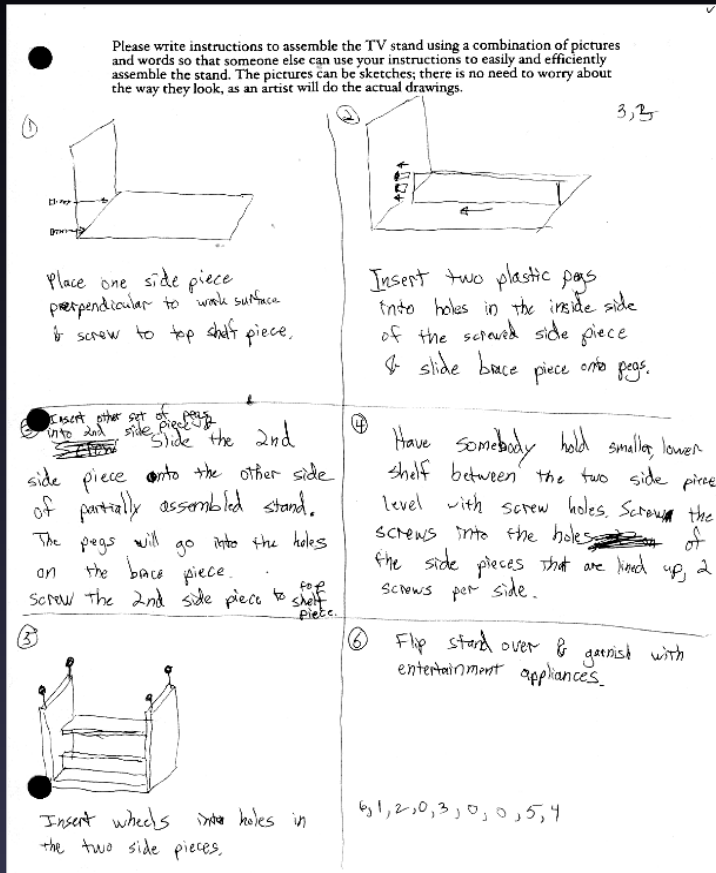 Please write instructions to assemble the TV stand using a combination of pictures
and words so that someone else can use your instructions to easily and efficiently
assemble the stand. The pictures can be sketches; there is no need to worry about
the way they look, as an artist will do the actual drawings.
1
Place one side piece
perpendicular to work surface
& screw to top shelf piece.
2
3,
Insert two plastic pegs
into holes in the inside side
of the screwed side piece
& slide brace piece onto pegs.
Insert other set of pegs
into 2nd side piece &
Slide the 2nd
side piece onto the other side
of partially assembled stand.
The pegs will go into the holes
on the brace piece.
Screw the 2nd side piece to top shelf
piece.
4
Have somebody hold smaller, lower
shelf between the two side piece
level with screw holes. Screw the
screws into the holes of
the side pieces that are lined up, 2
screws per side.
5
Insert wheels into holes in
the two side pieces.
6
Flip stand over & garnish with
entertainment appliances.
6,1,2,0,3,0,0,5,4